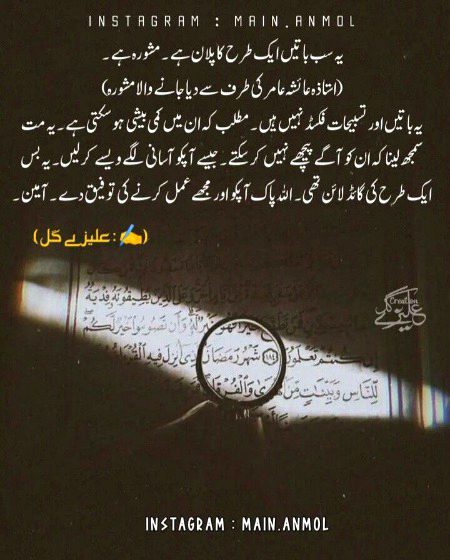 INSTAGRAM : MAIN.ANMOL
یہ سب باتیں ایک طرح کا پلان ہے۔ مشورہ ہے۔
(استاذہ عائشہ عامر کی طرف سے دیا جانے والا مشورہ)
یہ باتیں اور تسبیحات فکسڈ نہیں ہیں۔ مطلب کہ ان میں کمی بیشی ہو سکتی ہے۔ یہ مت
سمجھ لینا کہ ان کو آگے پیچھے نہیں کر سکتے۔ جیسے آپکو آسانی لگے ویسے کر لیں۔ یہ بس
ایک طرح کی گائڈ لائن تھی۔ اللہ پاک آپکو اور مجھے عمل کرنے کی توفیق دے۔ آمین۔
(✍️: علیزے گل)
وَأَن تَصُومُوا۟ خَيْرٌ لَّكُمْ
Creation
علیزے گل
تَعْلَمُونَ ١٨٤ شَهْرُ رَمَضَانَ
لِّلنَّاسِ وَبَيِّنَٰتٍ مِّنَ وَٱلْفُرْقَانِ
INSTAGRAM : MAIN.ANMOL